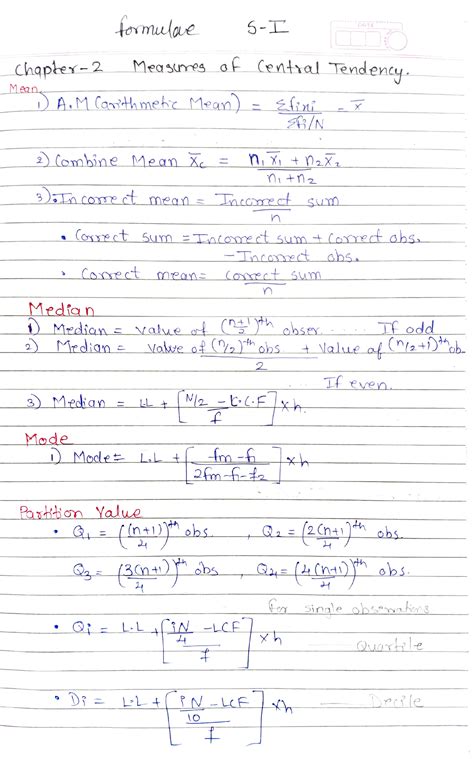 formulae S-I
DATE
Chapter-2 Measures of Central Tendency.
Mean
1) A.M (arithmetic Mean) = Σfixi / Σfi/N - x̄
2) Combine Mean x̄c = n₁x̄₁ + n₂x̄₂ / n₁+n₂
3) Incorrect mean = Incorrect sum / n
• Correct sum = Incorrect sum + Correct obs.
- Incorrect obs.
• Correct mean = correct sum / n
Median
1) Median = value of (n+1/2)th obser. If odd
2) Median = value of (n/2)th obs + Value of (n/2+1)th ob / 2
If even.
3) Median = LL + [N/2 - L.C.F / f] xh.
Mode
1) Mode = L.L + [fm - f₁ / 2fm-f₁-f₂] xh
Partition Value
• Q₁ = ((n+1)/4)th obs. , Q₂ = (2(n+1)/4)th obs.
Q₃ = (3(n+1)/4)th obs , Q₄ = (4(n+1)/4)th obs.
for single observations
• Qi = L.L + [iN/4 - LCF / f] xh Quartile
• Di = L.L + [iN/10 - LCF / f] xh Decile